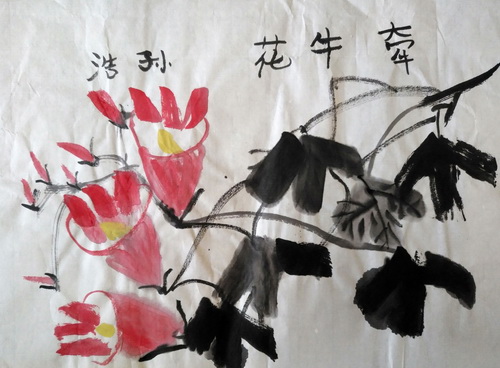 牵牛花 孙浩